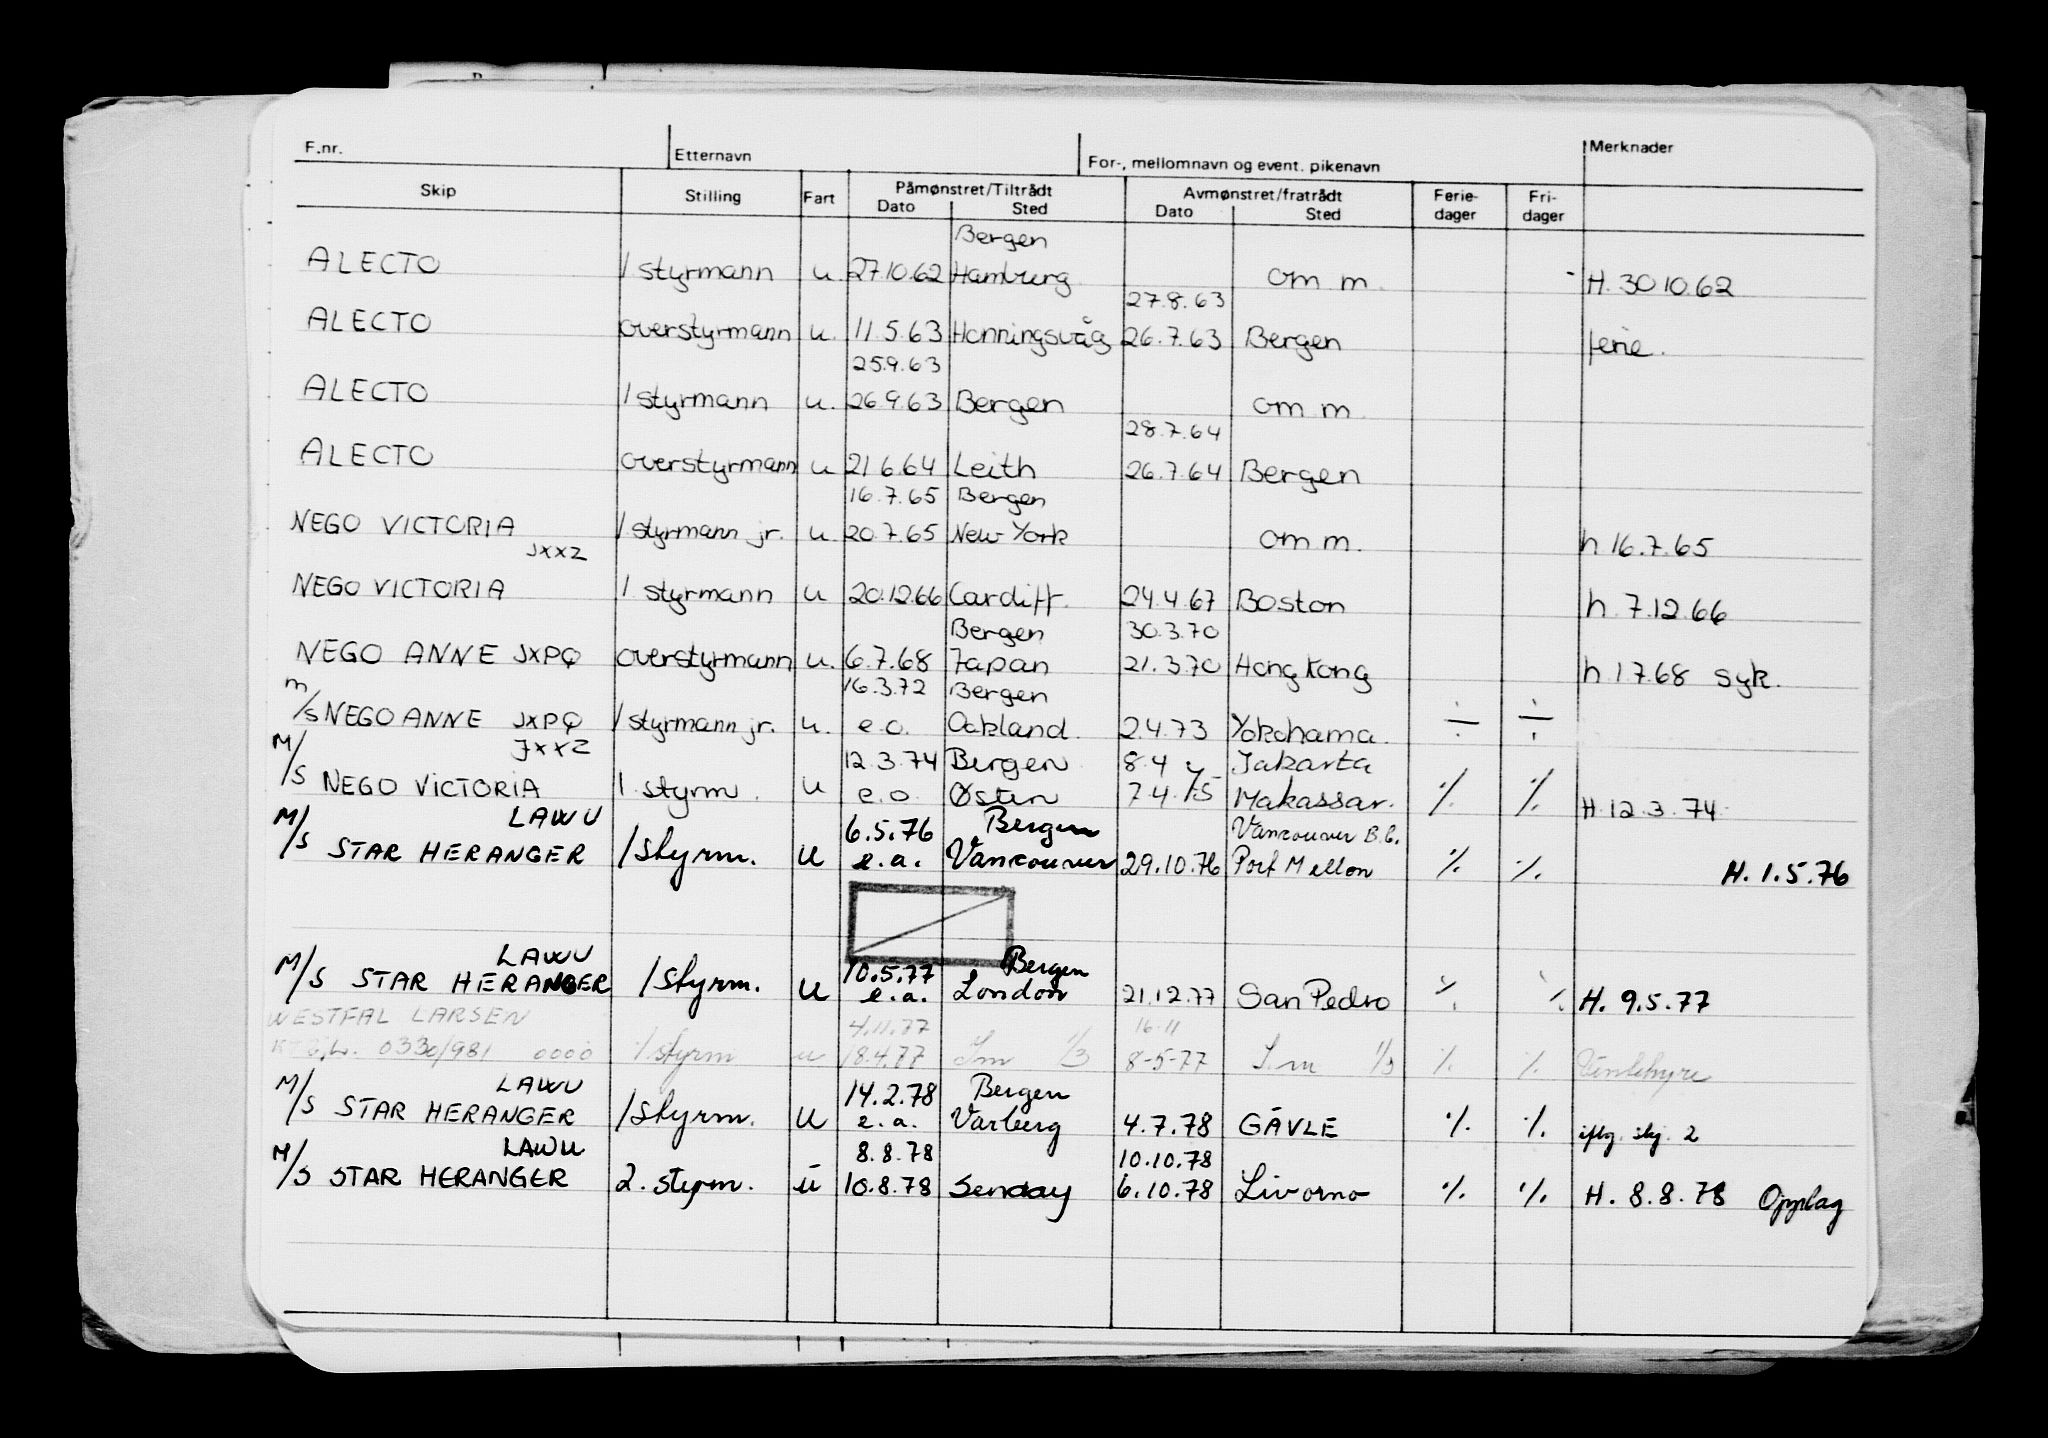 F.nr. Etternavn For-, mellomnavn og event. pikenavn Merknader
Skip Stilling Fart Påmønstret/Tiltrådt Avmønstret/fratrådt Ferie- Fri-
Dato Sted Dato Sted dager dager
Bergen
ALECTO 1 styrmann u. 27.10.62 Hamburg om m. H. 30 10.62
27.8.63
ALECTO overstyrmann u. 11.5.63 Honningsvåg 26.7.63 Bergen ferie.
25.9.63
ALECTO 1 styrmann u. 26 9.63 Bergen om m.
28.7.64
ALECTO overstyrmann u 21 6.64 Leith 26.7.64 Bergen
16.7.65 Bergen
NEGO VICTORIA 1 styrmann jr. u. 20.7.65 New York om m. h 16.7.65
JXXZ
NEGO VICTORIA 1 styrmann u 20.12.66 Cardiff. 24.4.67 Boston h. 7.12.66
Bergen 30.3.70
NEGO ANNE JXPQ overstyrmann u. 6.7.68 Japan 21.3.70 Hong Kong h 1 7.68 syk.
16.3.72 Bergen
m/s NEGO ANNE JXPQ 1 styrmann jr. u. e.o. Oakland. 2.4.73 Yokohama. ÷ ÷
JXXZ 12.3.74 Bergen 8.4 Jakarta
M/S NEGO VICTORIA 1. styrm. u e.o. Østen 7.4.75 Makassar. ٪ ٪ H.12.3.74
LAWU 6.5.76 Bergen Vancouver B.C.
M/S STAR HERANGER 1 styrm. u e.a. Vancouver 29.10.76 Port Mellon ٪ ٪ H. 1.5.76
LAWU 10.5.77 Bergen
M/S STAR HERANGER 1 styrm. u e.a. London 21.12.77 San Pedro ٪ ٪ H. 9.5.77
WESTFAL LARSEN 4.11.77 16-11
0330/981 0000 1. styrm u 18.4.77 8-5-77 ٪ ٪
LAWU 14.2.78 Bergen
M/S STAR HERANGER 1 styrm. u e.a. Varberg 4.7.78 GÄVLE ٪ ٪ iflg. skj. 2
LAWU 8.8.78 10.10.78
M/S STAR HERANGER 2. styrm. u 10.8.78 Senday 6.10.78 Livorno ٪ ٪ H. 8.8.78 Opplag